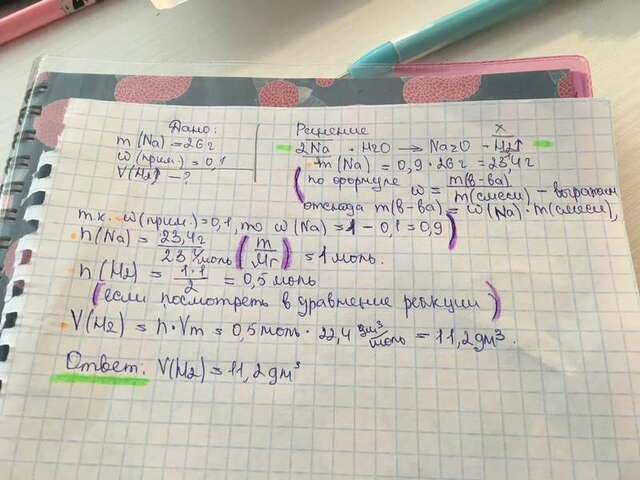 Дано:
m(Na) = 26г
w(прим.) = 0,1
V(H2) - ?
Решение
x
2Na + H2O → Na2O + H2↑
m(Na) = 0,9 · 26г = 23,4г
(по формуле w = m(в-ва) / m(смеси) – выражаем
отсюда m(в-ва) = w(Na) · m(смеси),
т.к. w(прим.) = 0,1, то w(Na) = 1 - 0,1 = 0,9)
n(Na) = 23,4г / 23 г/моль (m / Mr) = 1 моль.
n(H2) = 1·1 / 2 = 0,5 моль
(если посмотреть в уравнение реакции)
V(H2) = n · Vm = 0,5моль · 22,4 дм³/моль = 11,2дм³.
Ответ: V(H2) = 11,2дм³